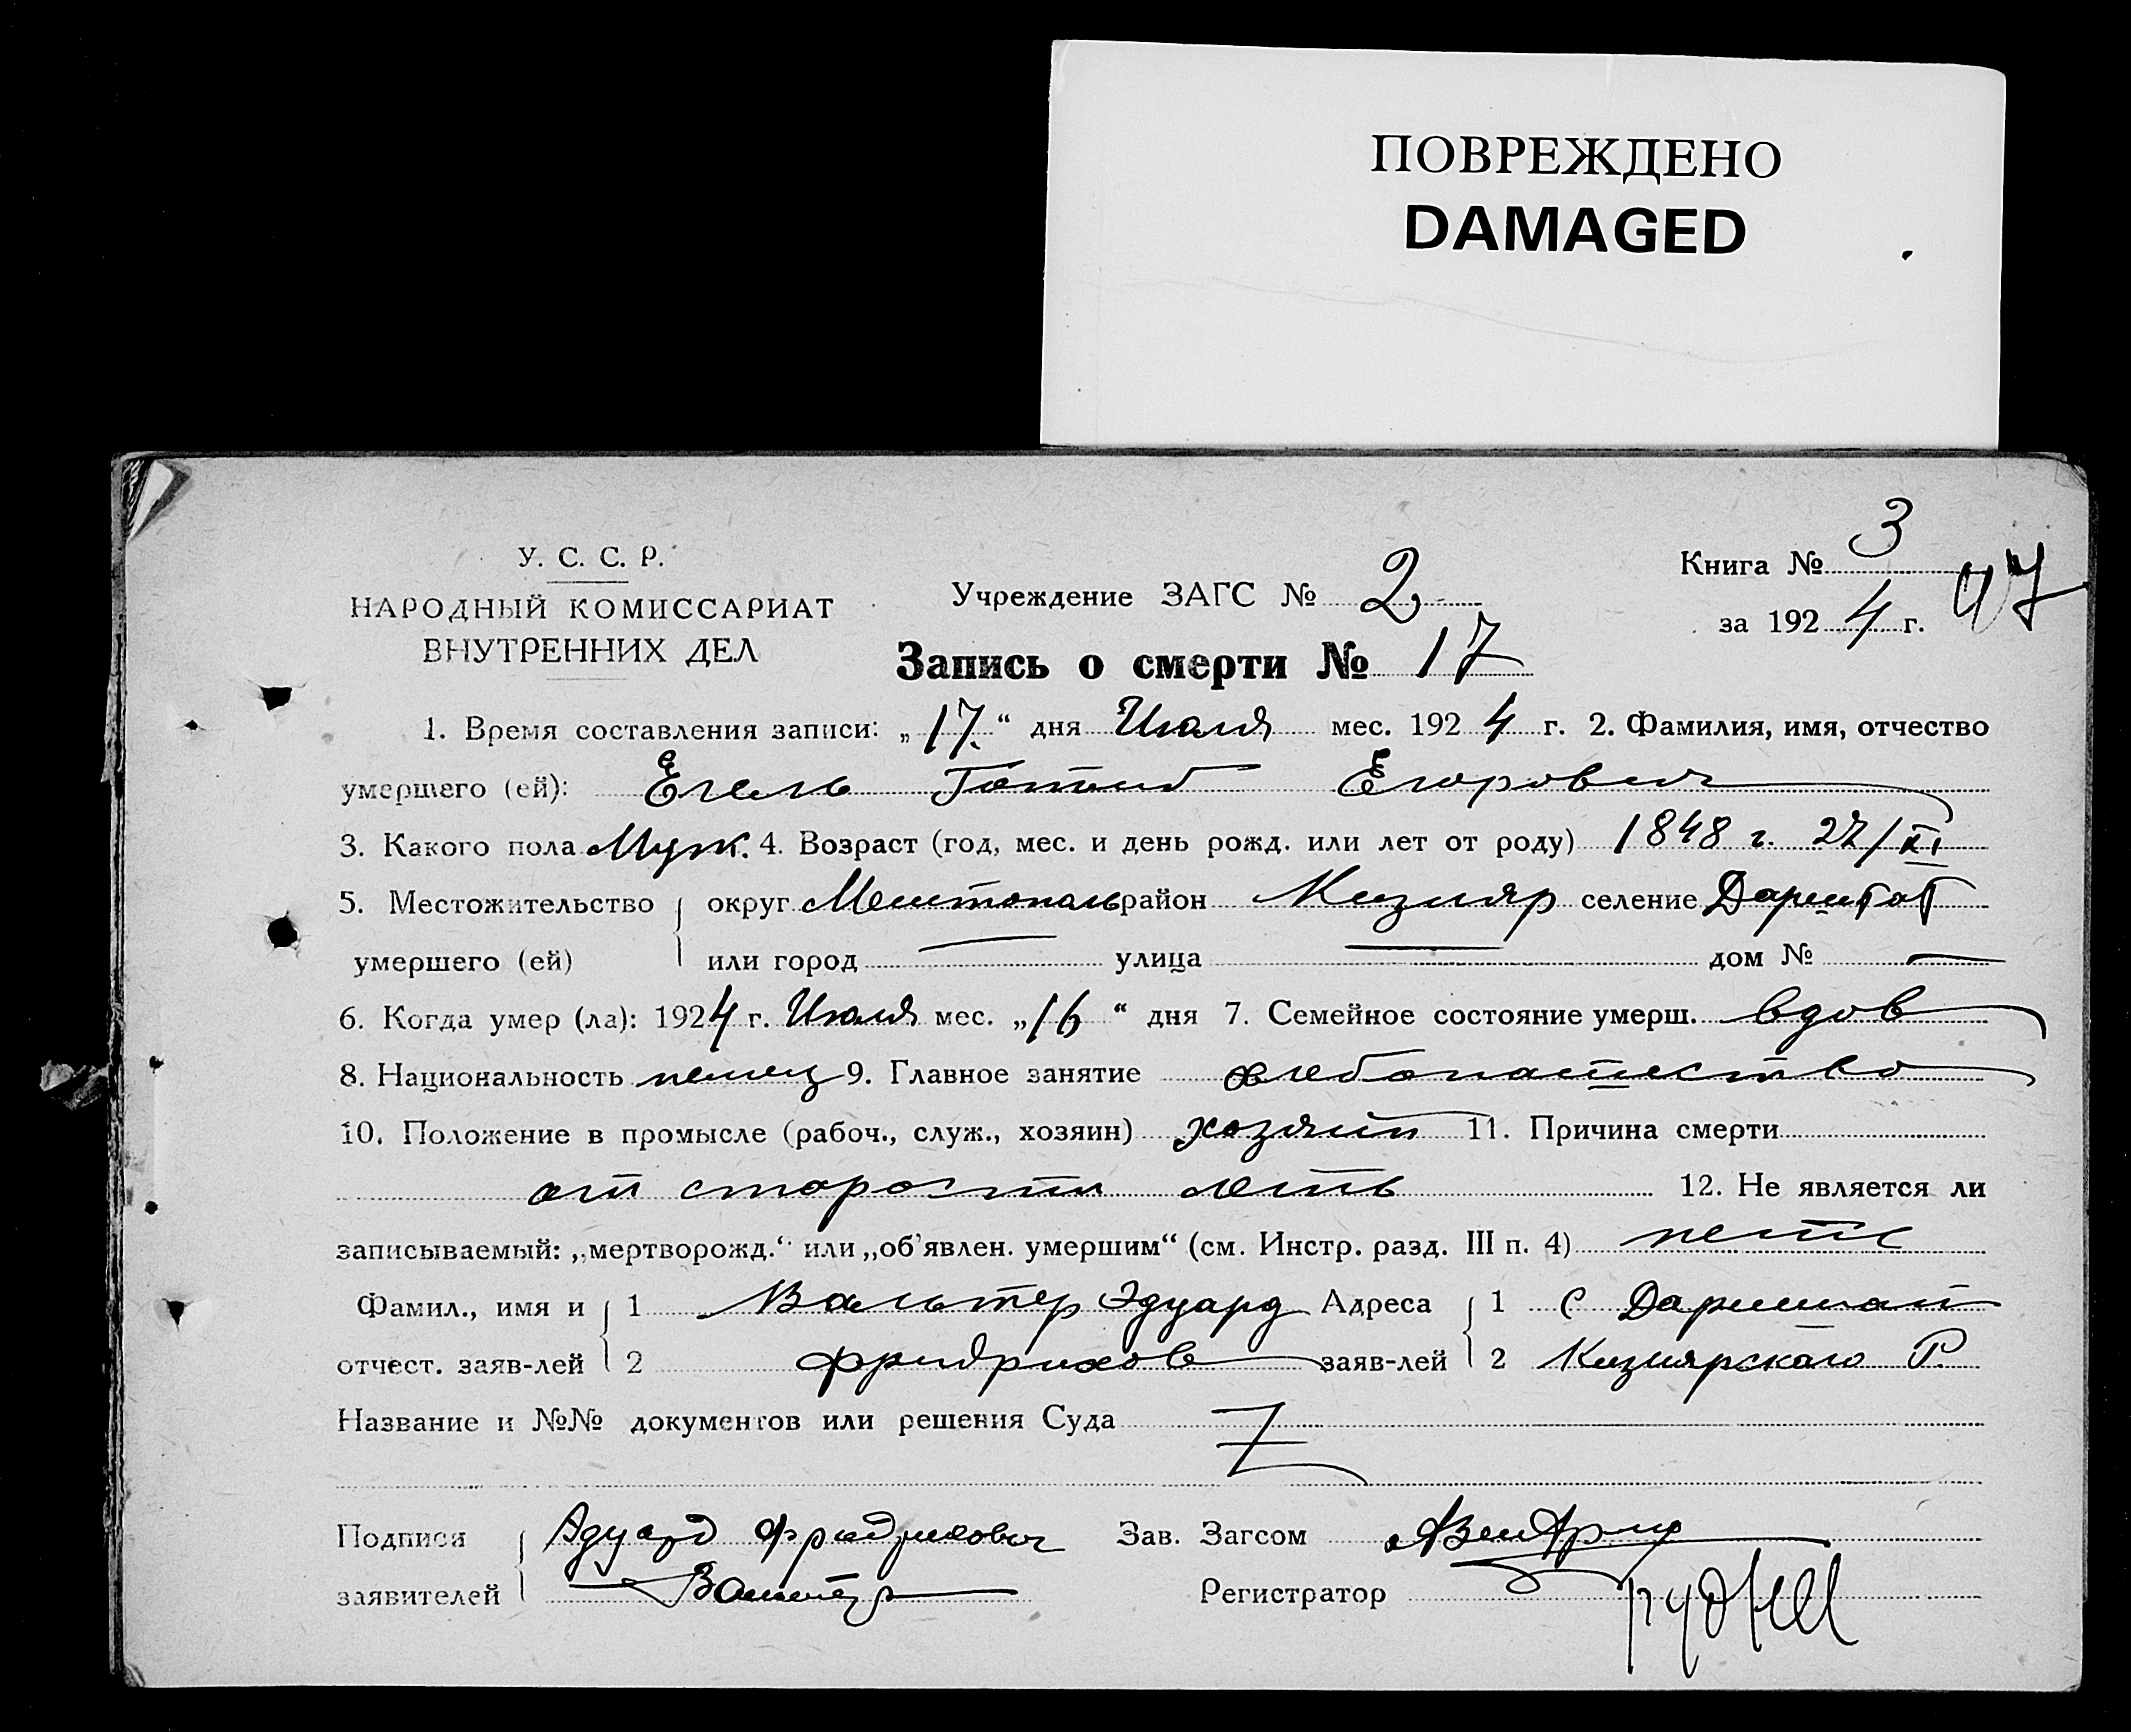 ПОВРЕЖДЕНО
DAMAGED
У. С. С. Р.
НАРОДНЫЙ КОМИССАРИАТ
ВНУТРЕННИХ ДЕЛ
Учреждение ЗАГС № 2
Книга № 3
за 1924 г. 97
Запись о смерти № 17
1. Время составления записи: „17.“ дня Июля мес. 1924 г. 2. Фамилия, имя, отчество
умершего (ей): Егель Готлиб Егорович
3. Какого пола Муж. 4. Возраст (год, мес. и день рожд. или лет от роду) 1848 г. 27/XI
5. Местожительство округ Мелитополь район Кизлияр селение Дармштат
умершего (ей) или город — улица — дом № —
6. Когда умер (ла): 1924 г. Июля мес. „16“ дня 7. Семейное состояние умерш. вдов
8. Национальность немец 9. Главное занятие хлебопашество
10. Положение в промысле (рабоч., служ., хозяин) хозяин 11. Причина смерти
от старости леть 12. Не является ли
записываемый: „мертворожд.“ или „об'явлен. умершим“ (см. Инстр. разд. III п. 4) нетъ
Фамил., имя и 1 Вальтер Эдуард Адреса 1 с Дармштат
отчест. заяв-лей 2 Фридрихов заяв-лей 2 Кизиярскаго Р.
Название и №№ документов или решения Суда
Подписи Эдуард Фридрихович Зав. Загсом
заявителей Вальтер Регистратор